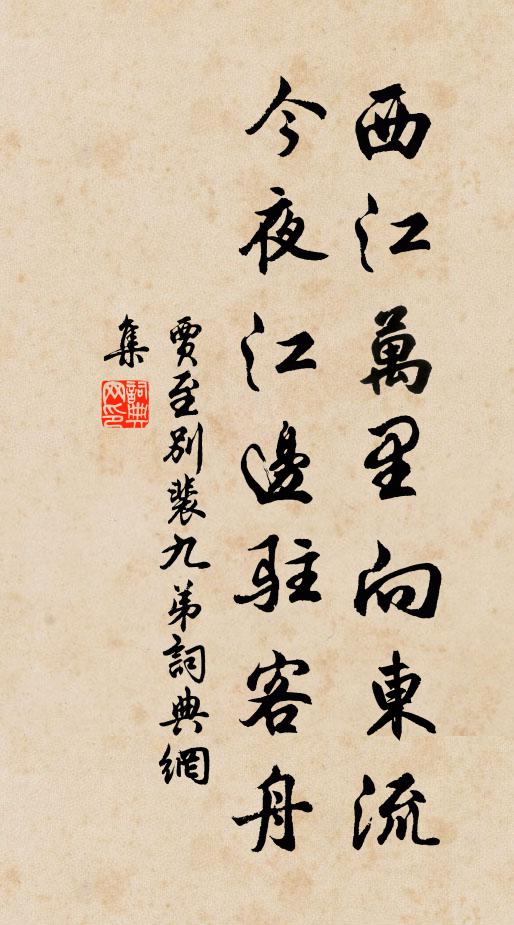 西江萬里向東流
今夜江邊駐客舟
賈至別裴九弟詞典網
集
詞典網印